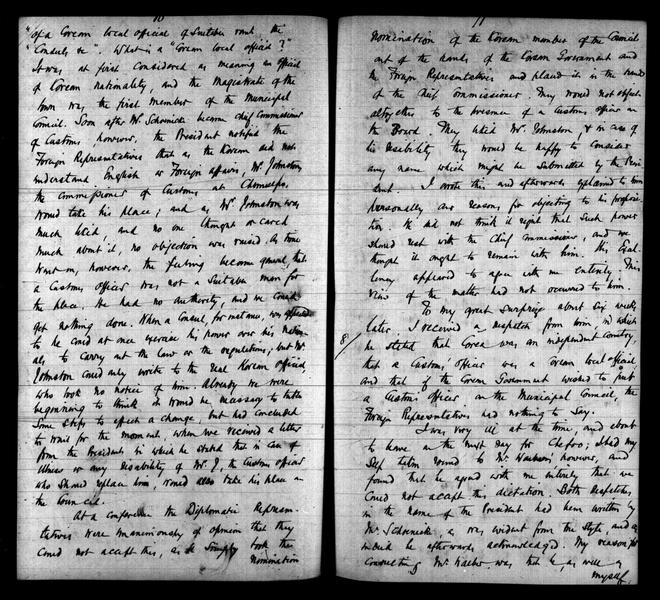 10
"of a Corean local official of suitable rank, the
"Consuls &c". What is a "Corean local official?"
It was at first considered as meaning an official
of Corean nationality, and the Magistrate of the
town was the first member of the Municipal
Council. Soon after Mr. Schoenicke became Chief Commissioner
of Customs, however, the President notified the
Foreign Representatives that as the Korean did not
understand English or Foreign affairs, Mr. Johnston,
the Commissioner of Customs at Chemulpo,
would take his place; and as Mr. Johnston was
much liked, and no one thought or cared
much about it, no objection was raised. As time
went on, however, the feeling became general, that
a Customs officer was not a suitable man for
the place. He had no authority, and we could
get nothing done. When a Consul, for instance, was
to he could at once exercise his power over his nation-
als to carry out the law or the regulations; but Mr.
Johnston could only write to the real Korean official
who took no notice of him. Already we were
beginning to think it would be necessary to take
some steps to effect a change, but had concluded
to wait for the moment, when we received a letter
from the President in which he stated that in case of
illness or any disability of Mr. J, the Customs officer
who should replace him, would also take his place in
the Council.
At a conference the Diplomatic Represen-
tatives were unanimously of opinion that they
could not accept this, as it simply took the
nomination
11
nomination of the Korean member of the Council
out of the hands of the Corean Government and
the Foreign Representatives and placed it in the hands
of the Chief Commissioner. They would not object
altogether to the presence of a Customs officer on
the Board. They liked Mr. Johnston, & in case of
his disability they would be happy to consider
any name which might be submitted by the Presi-
dent. I wrote this and afterwards explained to him
personally our reasons for objecting to his proposi-
tion. He did not think it right that such power
should rest with the Chief Commissioner, and we
thought it ought to remain with him. His Excel-
lency appeared to agree with me entirely. This
view of the matter had not occurred to him.
To my great surprise about six weeks
later, I received a despatch from him, in which
8/
he stated that Corea was an independent country,
that a Customs' officer was a Corean local official
and that if the Corean Government wished to put
a Customs Officer on the Municipal Council, the
Foreign Representatives had nothing to say.
I was very ill at the time, and about
to leave on the next day for Chefoo; I had my
however, and
found that he agreed with me entirely that we
could not accept this dictation. Both despatches
in the name of the President had been written by
Mr. Schoenicke, as was evident from the style, and as
indeed he afterwards acknowledged. My reason for
consulting Mr. was that he, as well as
myself,